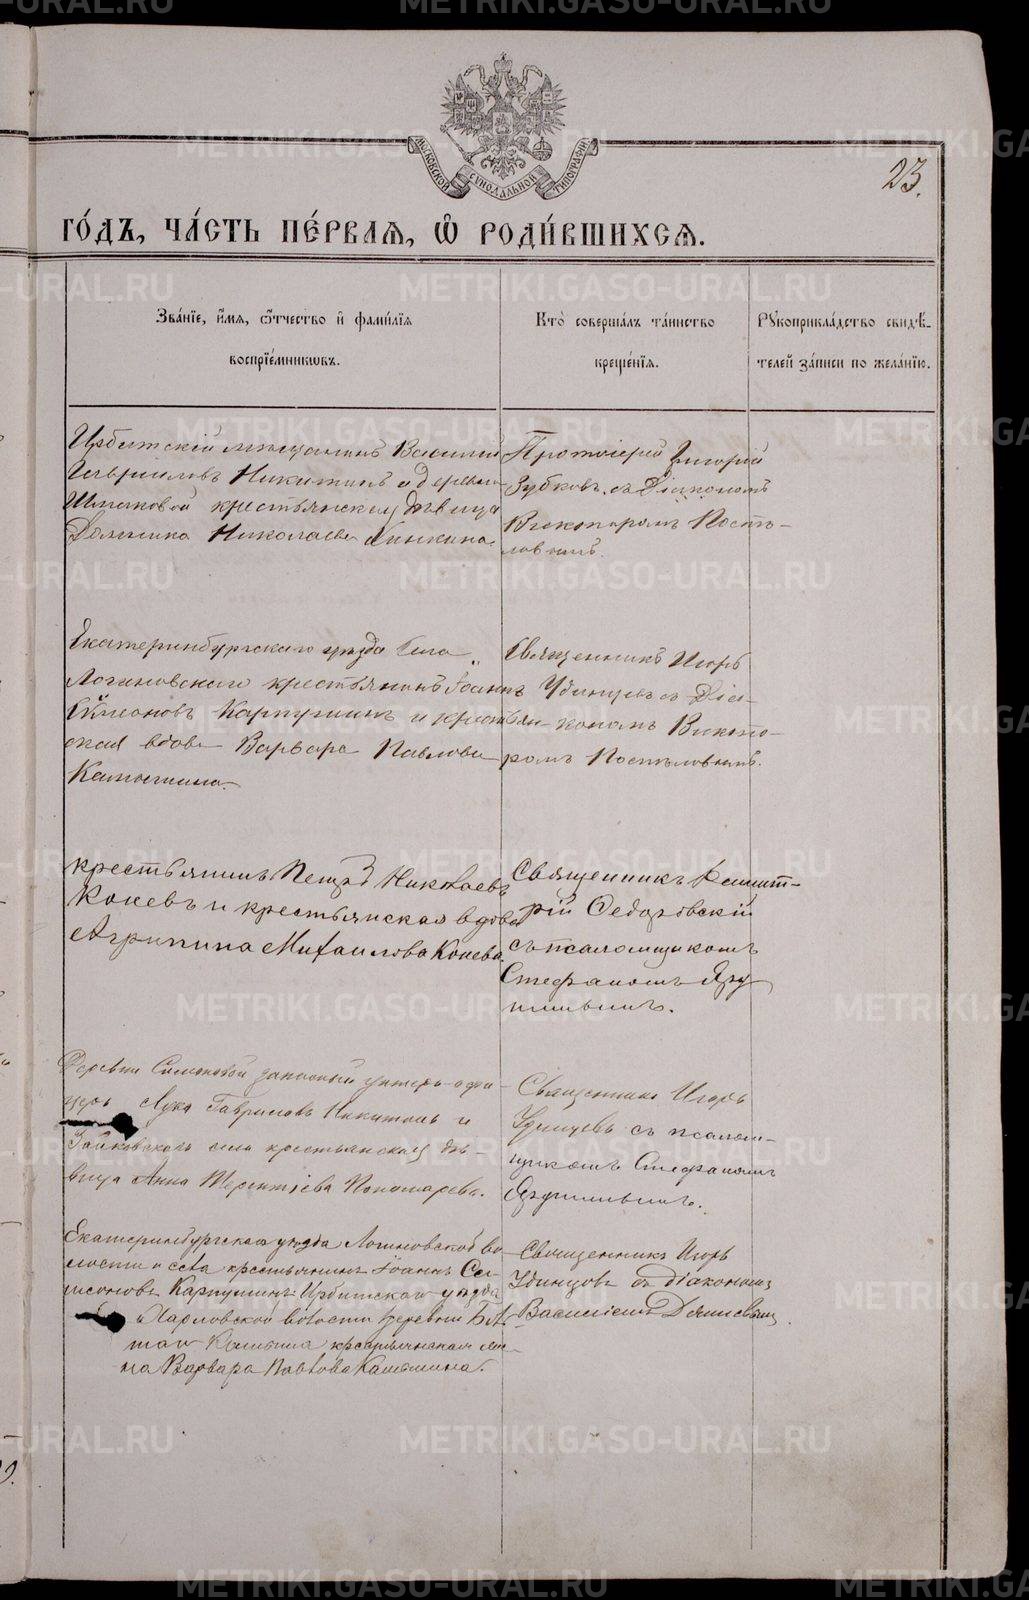 МОСКОВСКОЙ СѴНОДАЛЬНОЙ ТИПОГРАФІИ
23.
ГО́ДЪ, ЧА́СТЬ ПЕ́РВАѦ, Ѡ҆ РОДИ́ВШИХСѦ.
Зва́нїе, и҆́мѧ, ѻ҆́тчество и҆ фами́лїѧ
воспрїе́мникѡвъ.
Кто̀ соверша́лъ та́инство
креще́нїѧ.
Рꙋкоприкла́дство свидѣ́-
телей за́писи по жела́нїю.
Ирбитскій мещанинъ Василий
Гавриловъ Никитинъ и деревни
крестьянская девица
Домника Николаева
Протоіерей Григорій
Зубковъ съ Діакономъ
Викторомъ Постъ-
ловымъ.
Екатеринбургскаго уезда села
Логиновскаго крестьянинъ Іоаннъ
Симеоновъ Карпушинъ и крестьян
ская вдова Варвара Павлова
Камышина
Священникъ Игорь
Удинцевъ съ Діа-
кономъ Викто-
ромъ Постъловымъ.
крестьянинъ Николаевъ
Коневъ и крестьянская вдова
Агрипина Михаилова Конева.
Священникъ Димит-
рій
съ псаломщикомъ
Стефаномъ Яру
шинымъ.
Деревни запасный унтеръ-офи-
церъ Лука Гавриловъ Никитинъ и
Зайковскаго села крестьянская дѣ-
вица Анна Терентіева Пономарева.
Священникъ Игорь
Удинцевъ съ псалом-
щикомъ Стефаномъ
Екатеринбургскаго уезда Логиновской во
лости и села крестьянинъ Іоаннъ Си-
меоновъ Карпушинъ Ирбитскаго уезда
Харловской волости деревни
крестьянская же-
на Варвара Павлова Камышина.
Священникъ Игорь
Удинцевъ съ діакономъ
Василіемъ
METRIKI.GASO-URAL.RU